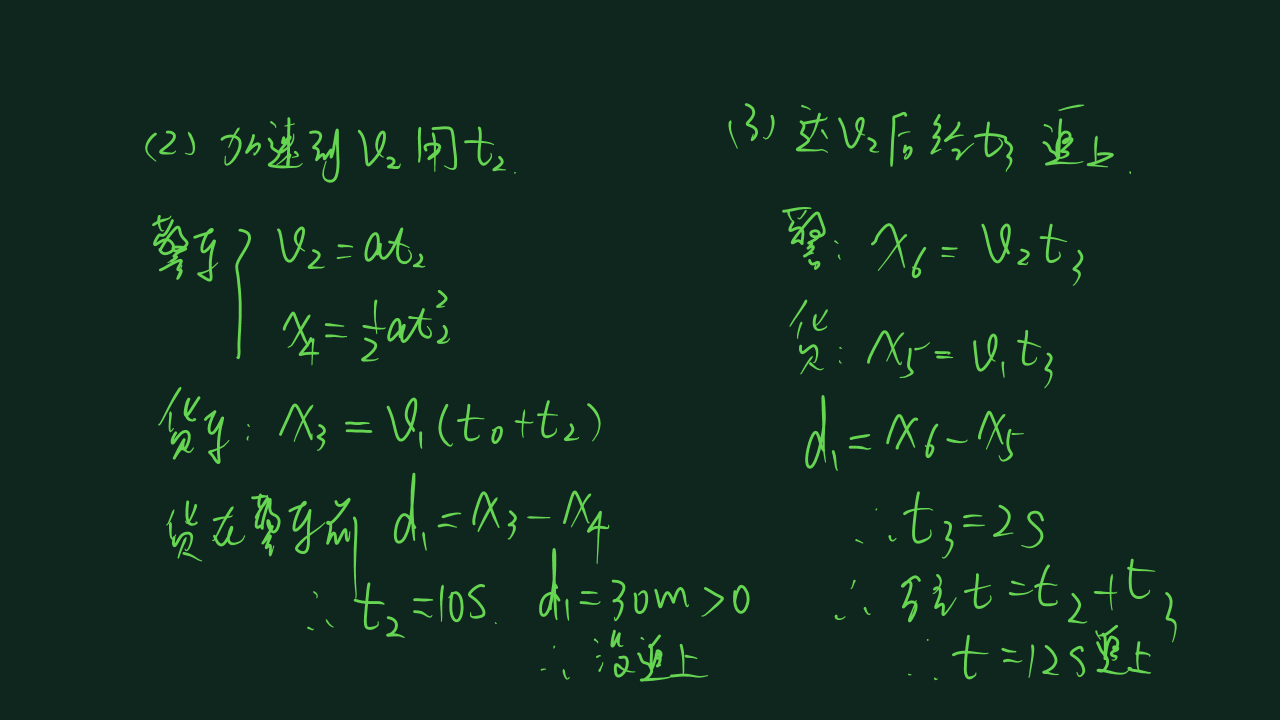 (2) 加速到 v₂ 用 t₂.
警车 { v₂ = at₂
x₄ = ½at₂²
货车: x₃ = v₁(t₀+t₂)
货在警车前 d₁ = x₃ − x₄
∴ t₂ = 10s. d₁ = 30m > 0
∴ 没追上
(3) 达 v₂ 后经 t₃ 追上.
警: x₆ = v₂t₃
货: x₅ = v₁t₃
d₁ = x₆ − x₅
∴ t₃ = 2s
∴ t = t₂ + t₃
∴ t = 12s 追上